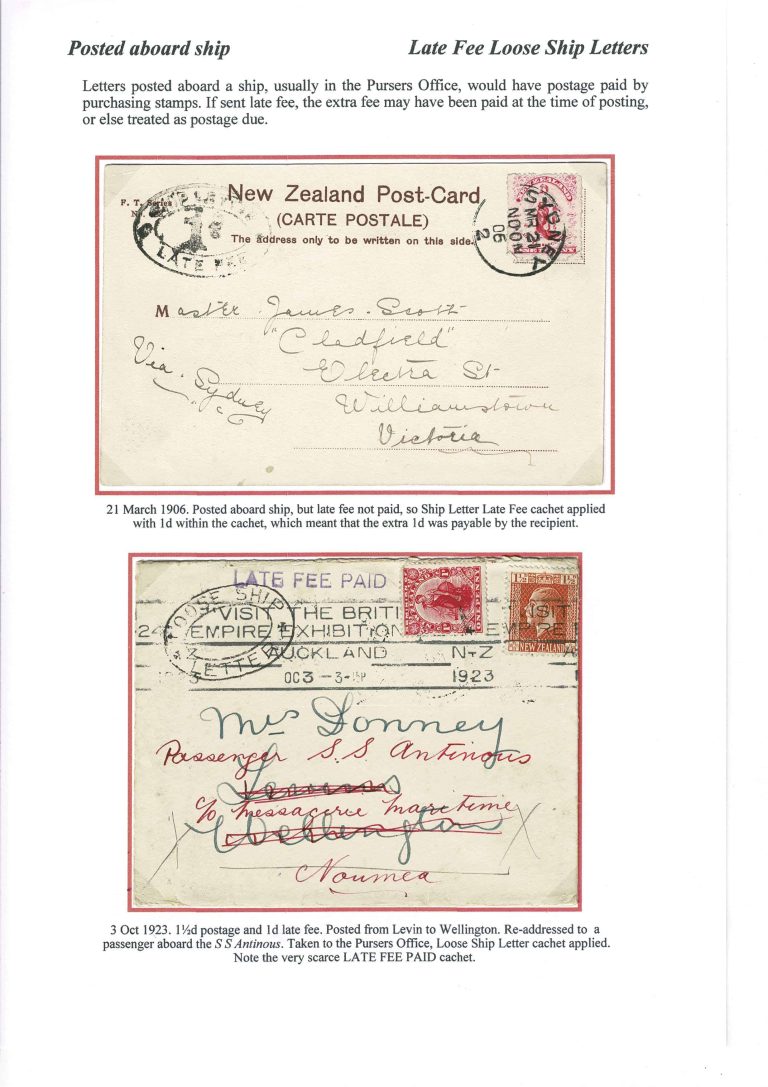 Posted aboard ship
Late Fee Loose Ship Letters
Letters posted aboard a ship, usually in the Pursers Office, would have postage paid by
purchasing stamps. If sent late fee, the extra fee may have been paid at the time of posting,
or else treated as postage due.
F. T. Series
New Zealand Post-Card
(CARTE POSTALE)
The address only to be written on this side.
LATE FEE
SYDNEY
MR 21
NOON
06
2
Master James Scott
"Cladfield"
Electra St
Williamstown
Victoria
Via Sydney
21 March 1906. Posted aboard ship, but late fee not paid, so Ship Letter Late Fee cachet applied
with 1d within the cachet, which meant that the extra 1d was payable by the recipient.
LATE FEE PAID
LOOSE SHIP
LETTER
VISIT THE BRITI
EMPIRE EXHIBITION
AUCKLAND N-Z
OC 3 – 3
1923
VISIT
EMPIRE
1½ 1½
NEW ZEALAND
Mrs Donney
Passenger S.S Antinous
c/o Messagerie Maritime
Wellington
Noumea
3 Oct 1923. 1½d postage and 1d late fee. Posted from Levin to Wellington. Re-addressed to a
passenger aboard the S S Antinous. Taken to the Pursers Office, Loose Ship Letter cachet applied.
Note the very scarce LATE FEE PAID cachet.